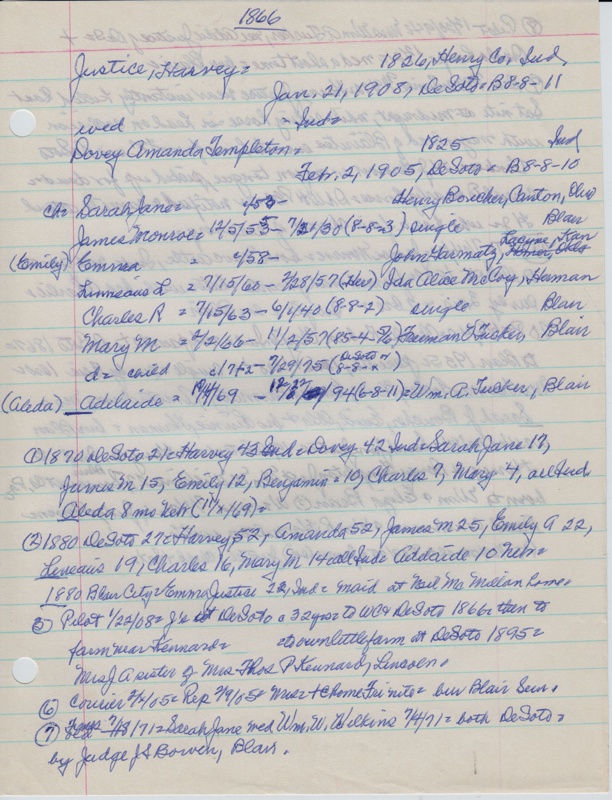 1866
Justice, Harvey = 1826, Henry Co, Ind,
Jan. 21, 1908, DeSoto = B8-8-11
wed = Ind =
Dovey Amanda Templeton = 1825 Ind
Febr. 2, 1905, DeSoto = B8-8-10
ch = Sarah Jane = c/53- Henry Boucher, Canton, Ohio
James Monroe = 12/5/55 - 7/21/30 (8-8-3) single Blair
(Emily) Emma = c/58- John Harmatz, Lacyne, Kan
Linneaus L = 7/15/60 - 2/28/57 (Her) Ida Alice McCoy, Herman
Charles R = 7/15/63 - 6/1/40 (8-8-2) single Blair
Mary M = 2/2/66 - 11/2/57 (85-4-5/6) Freeman L Tucker, Blair
d = wed 1/7/72 - 7/29/75 (DeSoto 8-8-x)
(Aleda) Adelaide = /69 - /94 (6-8-11) = Wm. A. Tucker, Blair
(1) 1870 DeSoto 21 = Harvey 43 Ind = Dovey 42 Ind = Sarah Jane 17,
James M 15, Emily 12, Benjamin = 10, Charles 7, Mary 4, all Ind
Aleda 8 mos Nebr (11/x/69) =
(2) 1880 DeSoto 27 = Harvey 52, Amanda 52, James M 25, Emily A 22,
Leneaus 19, Charles 16, Mary M 14 all Ind = Addeaide 10 Nebr =
1880 Blair City = Emma Justice 22, Ind = maid at Neil McMillan home.
5) Pilot 1/22/08 = J's at DeSoto = 32 yrs = to WC & DeSoto 1866 = then to
farm near Kennard = to own little farm at DeSoto 1895 =
Mrs J A sister of Mrs Thos P Kennard, Lincoln.
(6) Courier 2/4/05 = Rep 2/9/05 = Mrs J + home Fri nite = bur Blair Sun.
(7) 7/13/71 = Sarah Jane wed Wm. W. Wilkins 7/4/71 = both DeSoto =
by Judge J S Bowen, Blair.